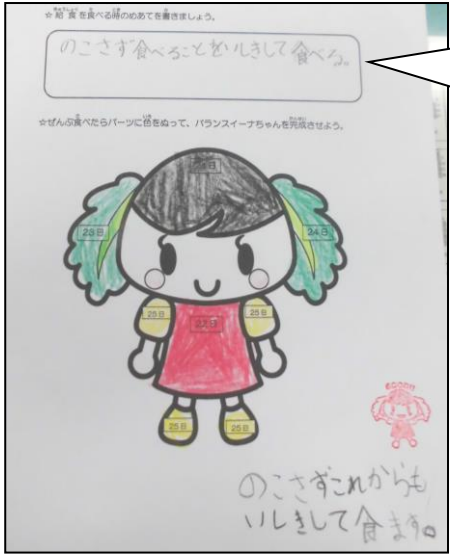 ☆給食を食べる時のめあてを書きましょう。
のこさず食べることをいしきして食べる。
☆ぜんぶ食べたらパーツに色をぬって、バランスイーナちゃんを完成させよう。
23日
24日
25日
22日
25日
25日
25日
のこさずこれからも
いしきして食ます。